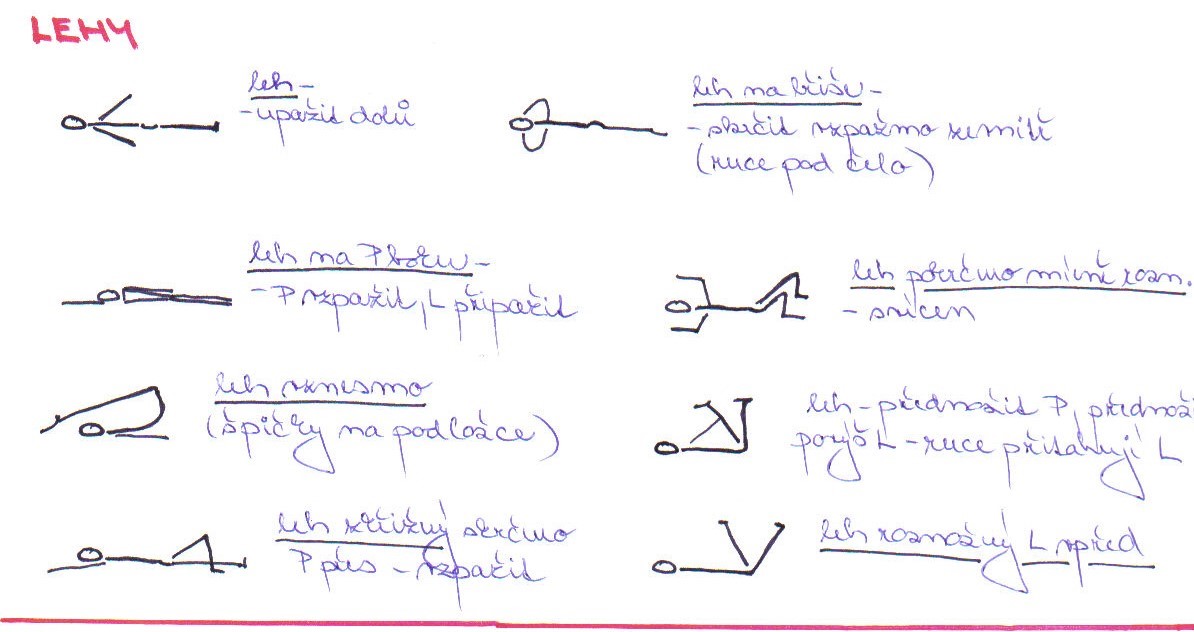 LEHY
leh -
- upažit dolů
leh na břiše -
- skrčit vzpažmo zevnitř
(ruce pod čelo)
leh na P boku -
- P vzpažit, L připažit
leh pokrčmo mírně rozn.
- svícen
leh vznesmo
(špičky na podložce)
leh - přednožit P, přednoži
povýš L - ruce přitahují L
leh zkřižný skrčmo
P přes - vzpažit
leh roznožný L vpřed